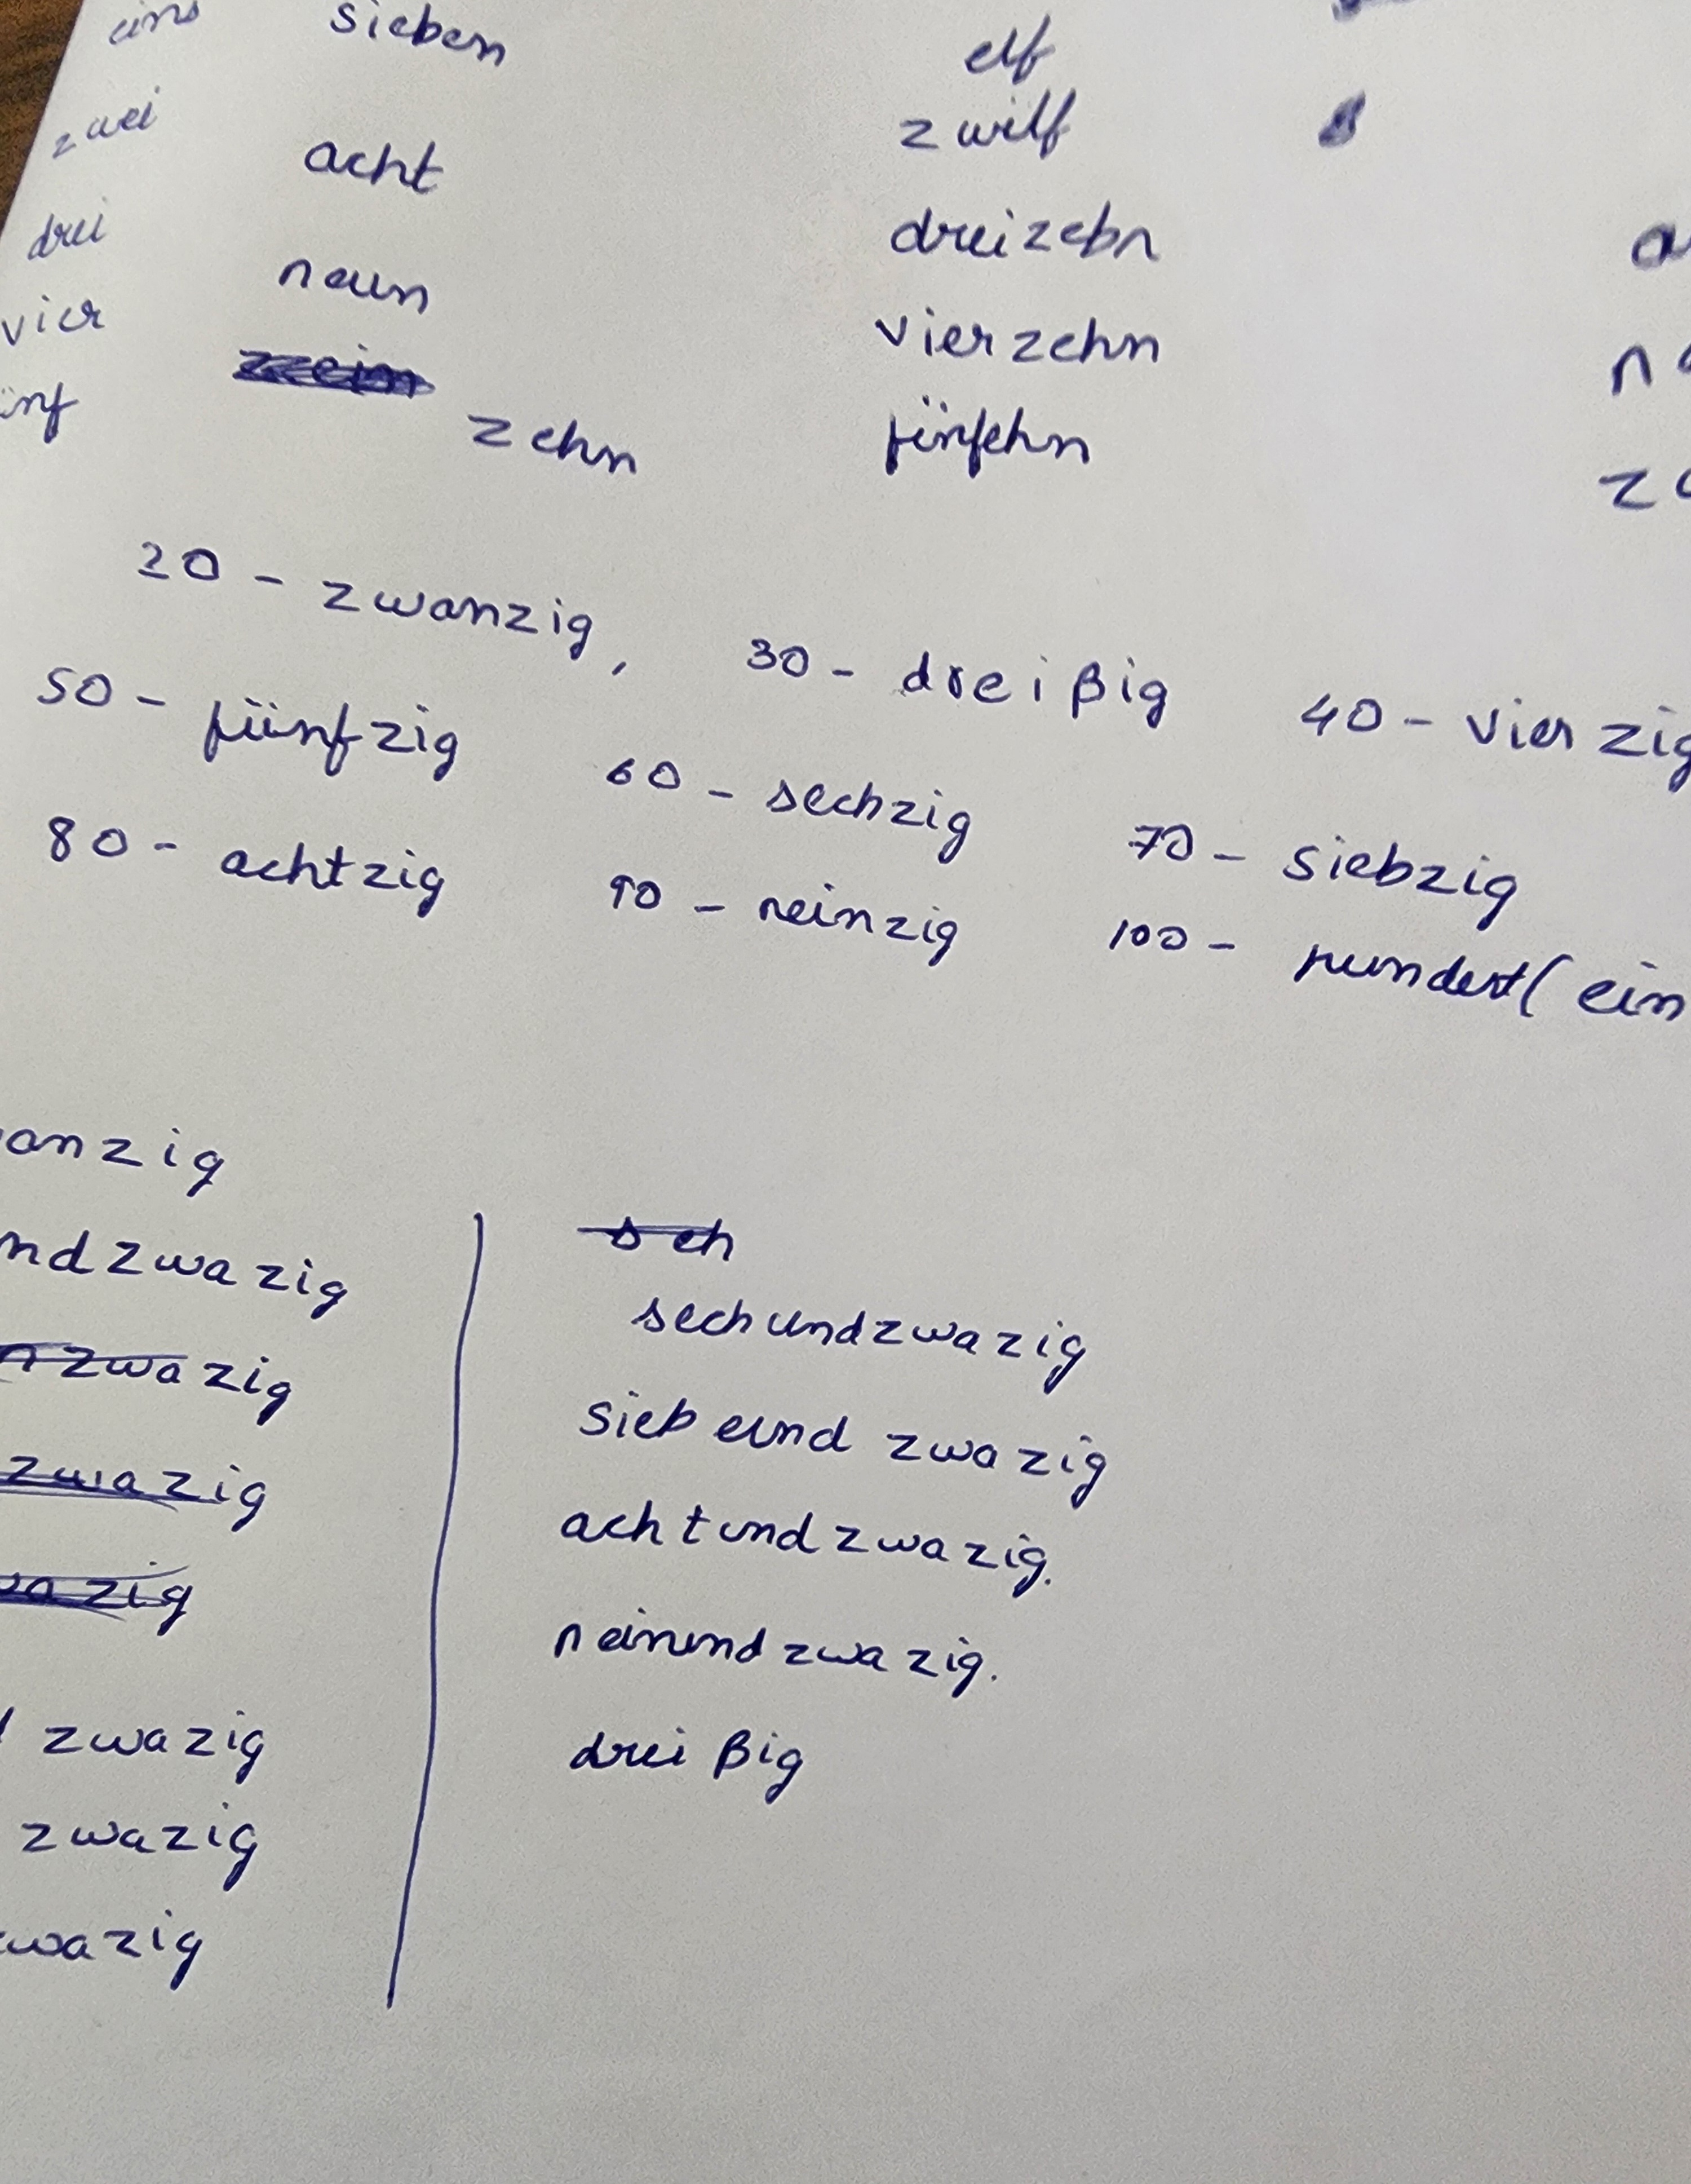 eins sieben elf
zwei acht zwilf
drei neun dreizebn
vier vierzehn
inf zehn fünfehn
20 - zwanzig, 30 - dreißig 40 - vierzig
50 - fünfzig 60 - sechzig 70 - siebzig
80 - achtzig 90 - neinzig 100 - hundert (ein
anzig
ndzwazig
nzwazig
zwazig
wazig
zwazig
zwazig
wazig
seh
sechundzwazig
siebeund zwazig
achtundzwazig.
neinundzwazig.
dreißig